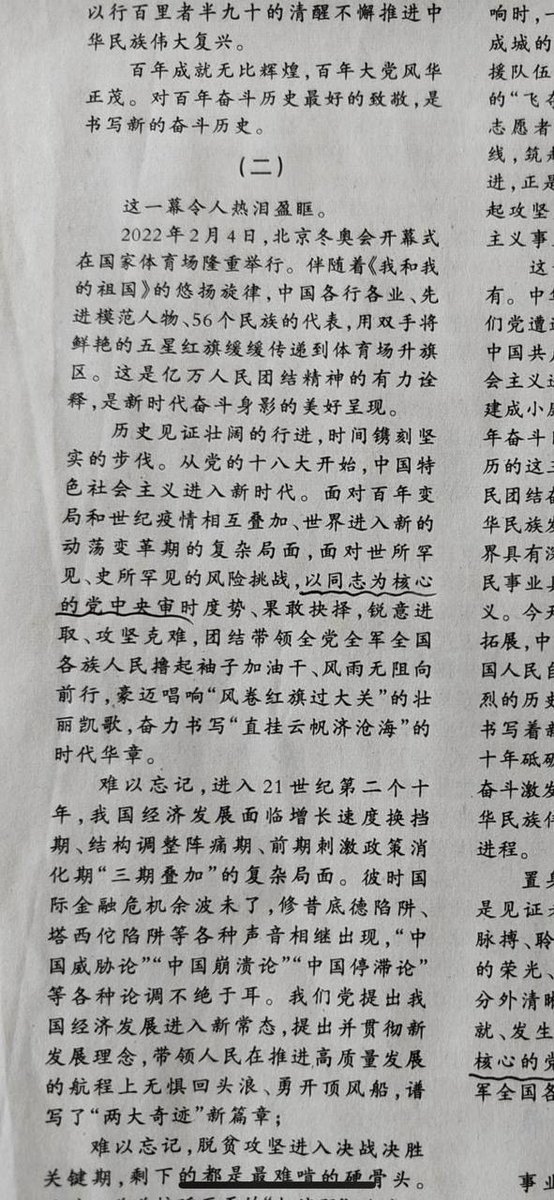 以行百里者半九十的清醒不懈推进中
华民族伟大复兴。
百年成就无比辉煌,百年大党风华
正茂。对百年奋斗历史最好的致敬,是
书写新的奋斗历史。
(二)
这一幕令人热泪盈眶。
2022年2月4日,北京冬奥会开幕式
在国家体育场隆重举行。伴随着《我和我
的祖国》的悠扬旋律,中国各行各业、先
进模范人物、56个民族的代表,用双手将
鲜艳的五星红旗缓缓传递到体育场升旗
区。这是亿万人民团结精神的有力诠
释,是新时代奋斗身影的美好呈现。
历史见证壮阔的行进,时间镌刻坚
实的步伐。从党的十八大开始,中国特
色社会主义进入新时代。面对百年变
局和世纪疫情相互叠加、世界进入新的
动荡变革期的复杂局面,面对世所罕
见、史所罕见的风险挑战,以同志为核心
的党中央审时度势、果敢抉择,锐意进
取、攻坚克难,团结带领全党全军全国
各族人民撸起袖子加油干、风雨无阻向
前行,豪迈唱响“风卷红旗过大关”的壮
丽凯歌,奋力书写“直挂云帆济沧海”的
时代华章。
难以忘记,进入21世纪第二个十
年,我国经济发展面临增长速度换挡
期、结构调整阵痛期、前期刺激政策消
化期“三期叠加”的复杂局面。彼时国
际金融危机余波未了,修昔底德陷阱、
塔西佗陷阱等各种声音相继出现,“中
国威胁论”“中国崩溃论”“中国停滞论”
等各种论调不绝于耳。我们党提出我
国经济发展进入新常态,提出并贯彻新
发展理念,带领人民在推进高质量发展
的航程上无惧回头浪、勇开顶风船,谱
写了“两大奇迹”新篇章;
难以忘记,脱贫攻坚进入决战决胜
关键期,剩下的都是最难啃的硬骨头。
响时,一
成城的
援队伍
的“飞夺
志愿者
线,筑起
进,正是
起攻坚
主义事
这
有。中华
们党遭
中国共产
会主义
建成小康
年奋斗
历的这
民团结奋
华民族发
界具有深
民事业
义。今天
拓展,中
国人民自
烈的历史
书写着新
十年砥砺
奋斗激发
华民族伟
进程。
置身
是见证
脉搏、聆
的荣光、
分外清晰
就、发生
核心的党
军全国各
事业